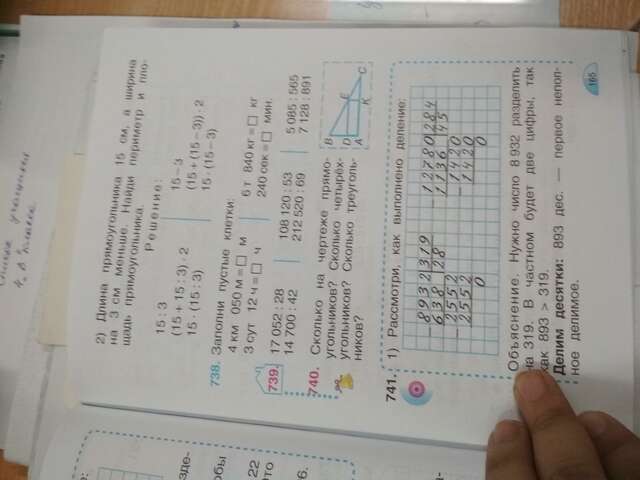 2) Длина прямоугольника 15 см, а ширина
на 3 см меньше. Найди периметр и пло-
щадь прямоугольника.
Решение:
15 : 3
(15 + 15 : 3) · 2
15 · (15 : 3)
15 − 3
(15 + (15 − 3)) · 2
15 · (15 − 3)
738. Заполни пустые клетки:
4 км 050 м = □ м
6 т 840 кг = □ кг
3 сут 12 ч = □ ч
240 сек = □ мин.
739. 17 052 : 28
14 700 : 42
108 120 : 53
212 520 : 69
5 085 : 565
7 128 : 891
740. Сколько на чертеже прямо-
угольников? Сколько четырёх-
угольников? Сколько треуголь-
ников?
B
E
C
D
A
K
741. 1) Рассмотри, как выполнено деление:
− 8932 319
638 28
− 2552
2552
0
− 12780 284
1136 45
− 1420
1420
0
Объяснение. Нужно число 8 932 разделить
на 319. В частном будет две цифры, так
как 893 > 319.
Делим десятки: 893 дес. — первое непол-
ное делимое.
165